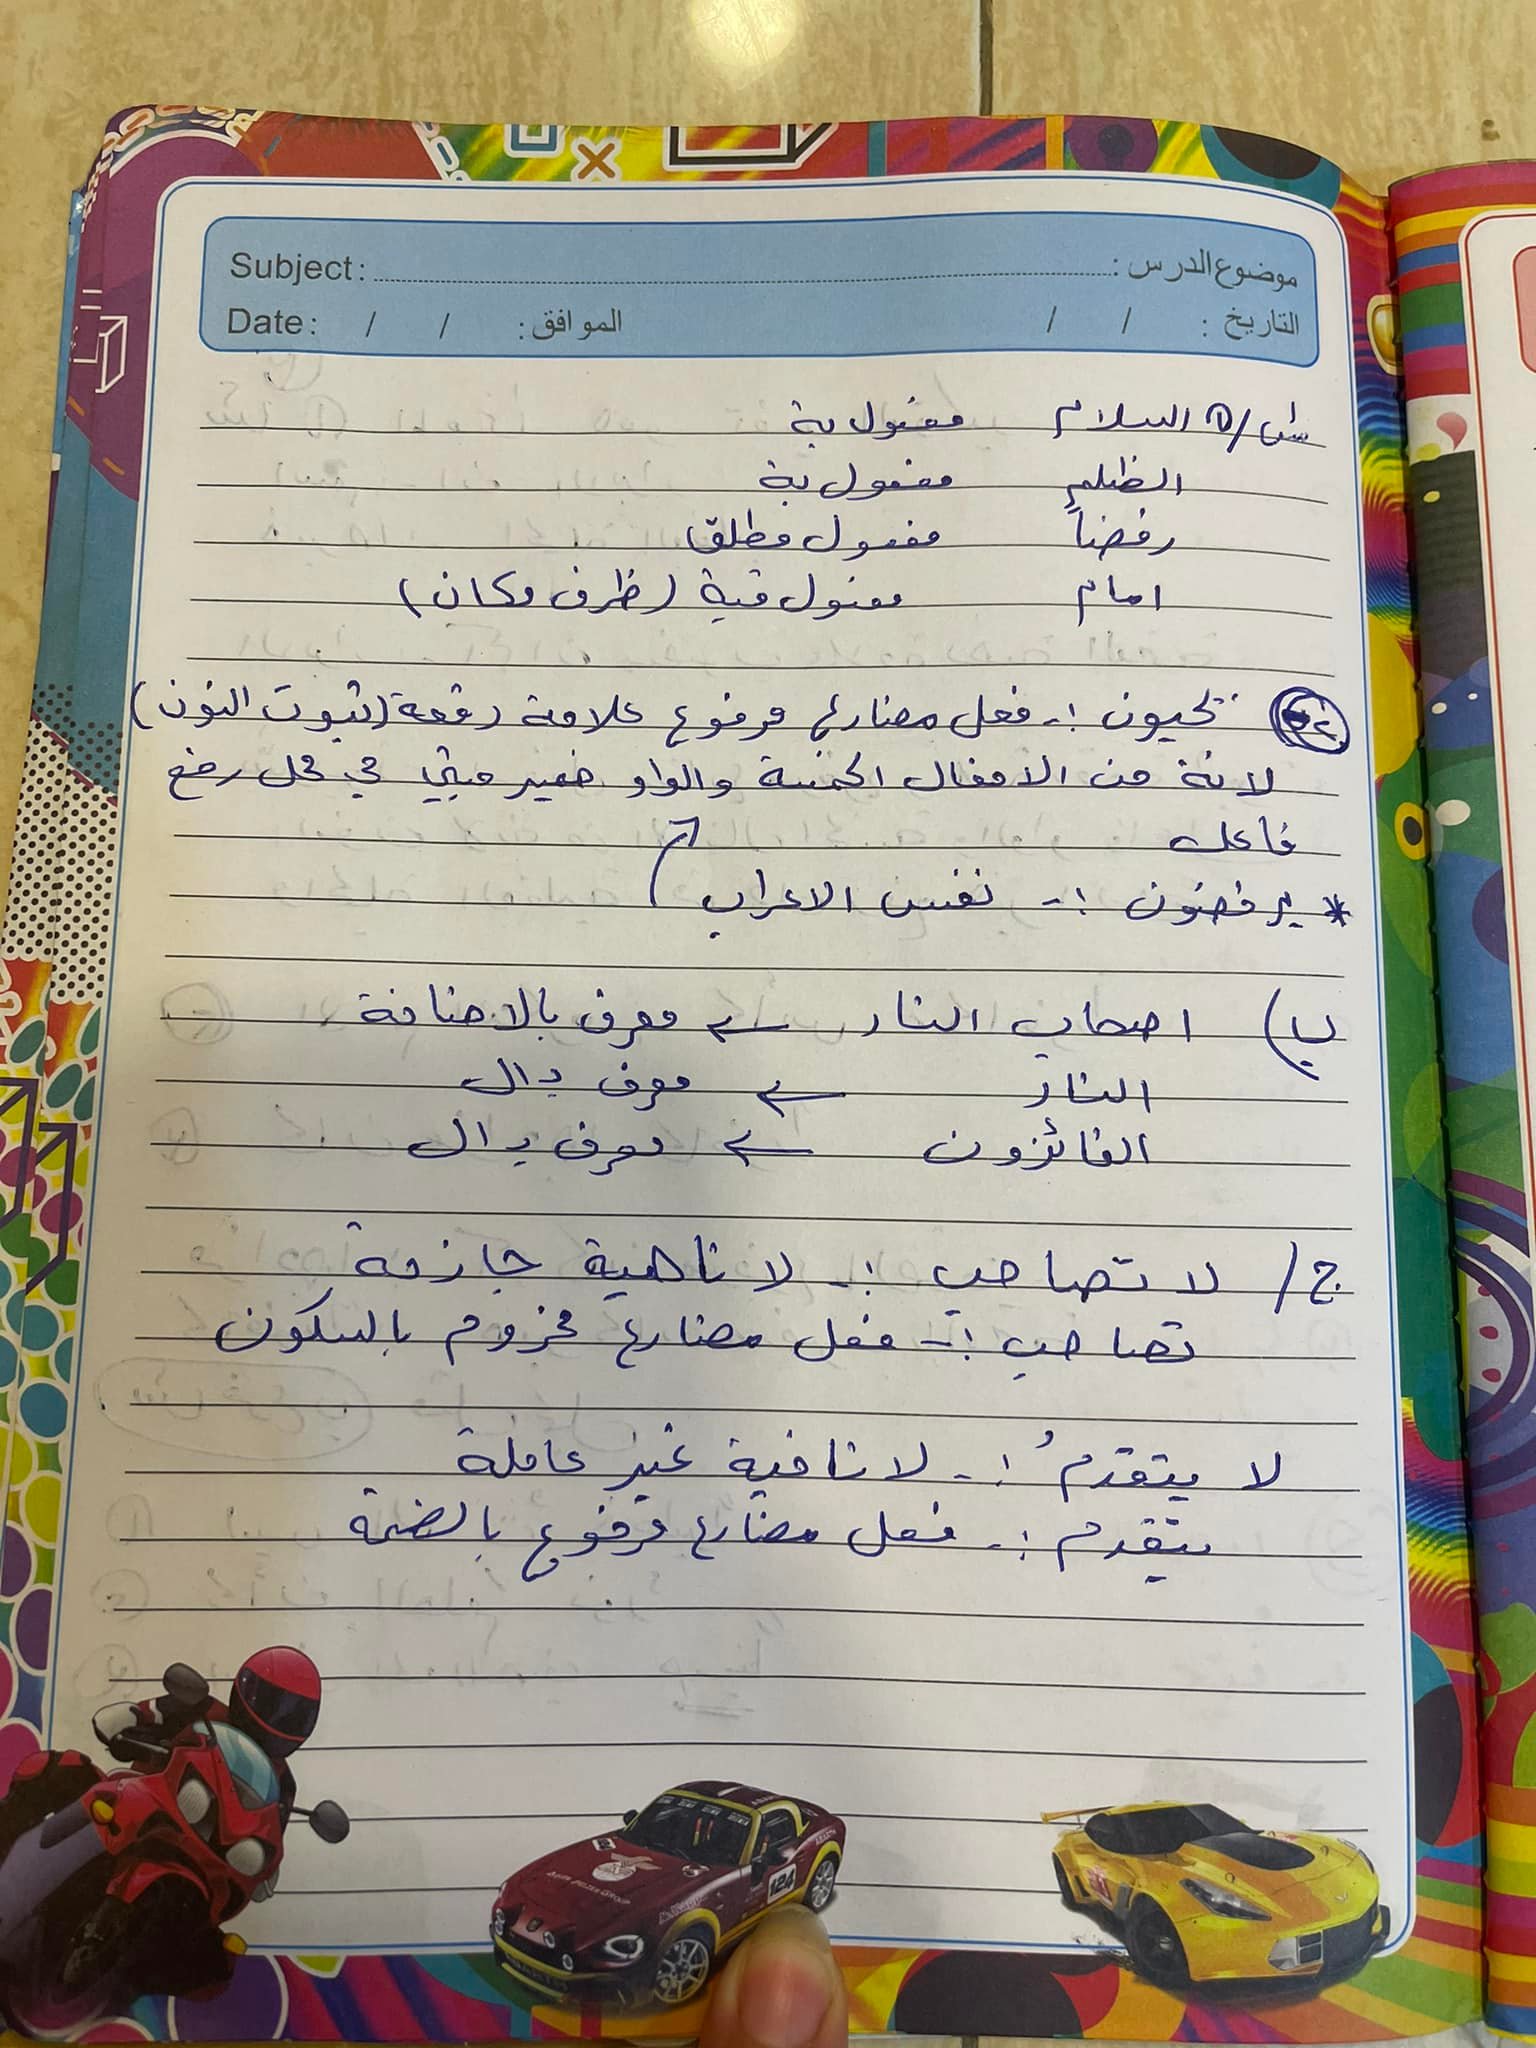 موضوع الدرس : Subject:
التاريخ : / / الموافق : / / Date:
س١/ ① السلام مفعول بة
الظلم مفعول بة
رفضاً مفعول مطلق
امام مفعول فية (ظرف مكان)
٢ يحبون :- فعل مضارع مرفوع علامة رفعة (ثبوت النون)
لانة من الافعال الخمسة والواو ضمير مبني في محل رفع
فاعل
* يرفضون :- نفس الاعراب
ب) اصحاب النار ← معرف بالاضافة
النار ← معرف بـ ال
الفائزون ← معرف بـ ال
ج/ لا تصاحب :- لا ناهية جازمة
تصاحب :- فعل مضارع مجزوم بالسكون
لا يتقدمُ :- لا نافية غير عاملة
يتقدم :- فعل مضارع مرفوع بالضمة
124